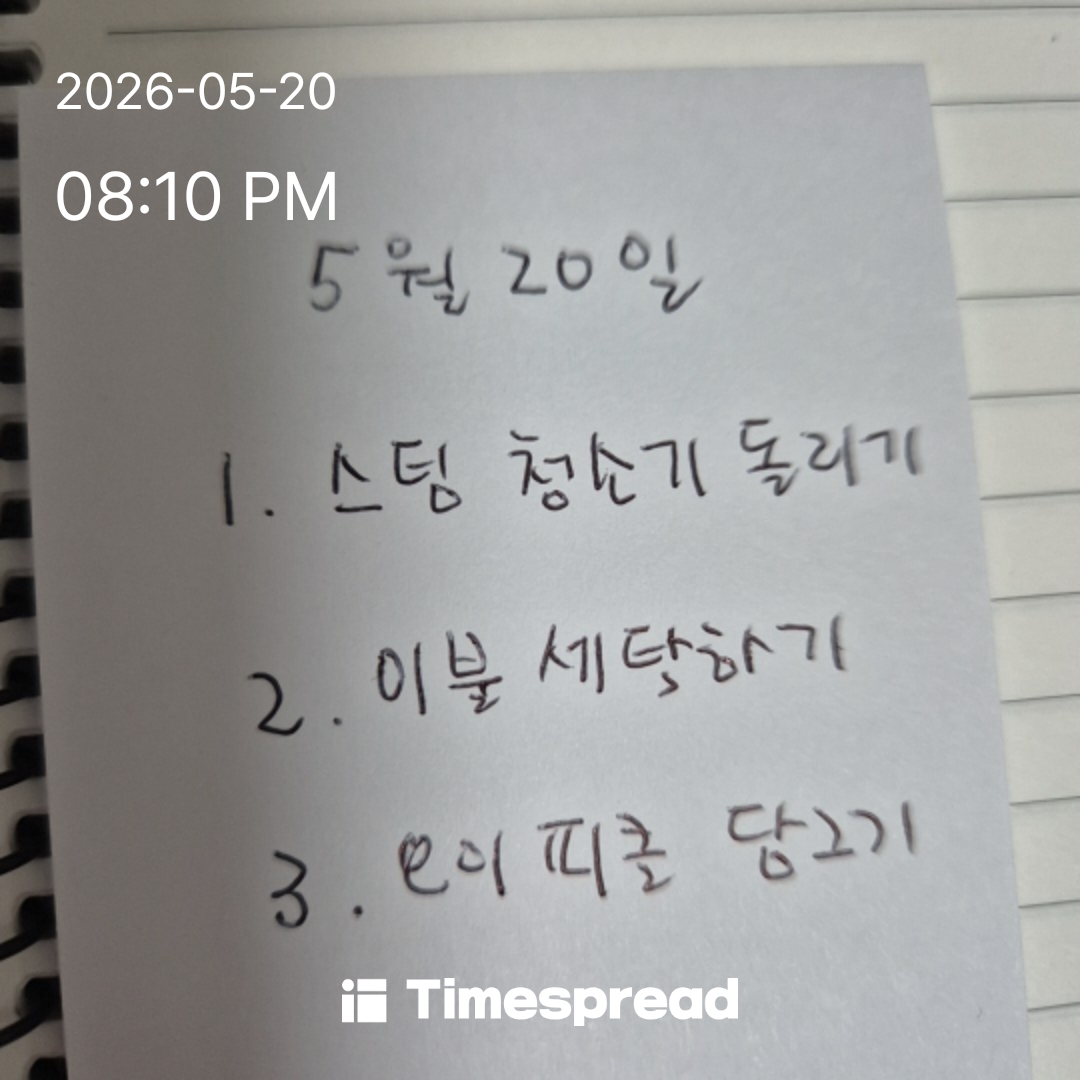 2026-05-20
08:10 PM
5월 20일
1. 스팀 청소기 돌리기
2. 이불 세탁하기
3. 오이 피클 담그기
Timespread